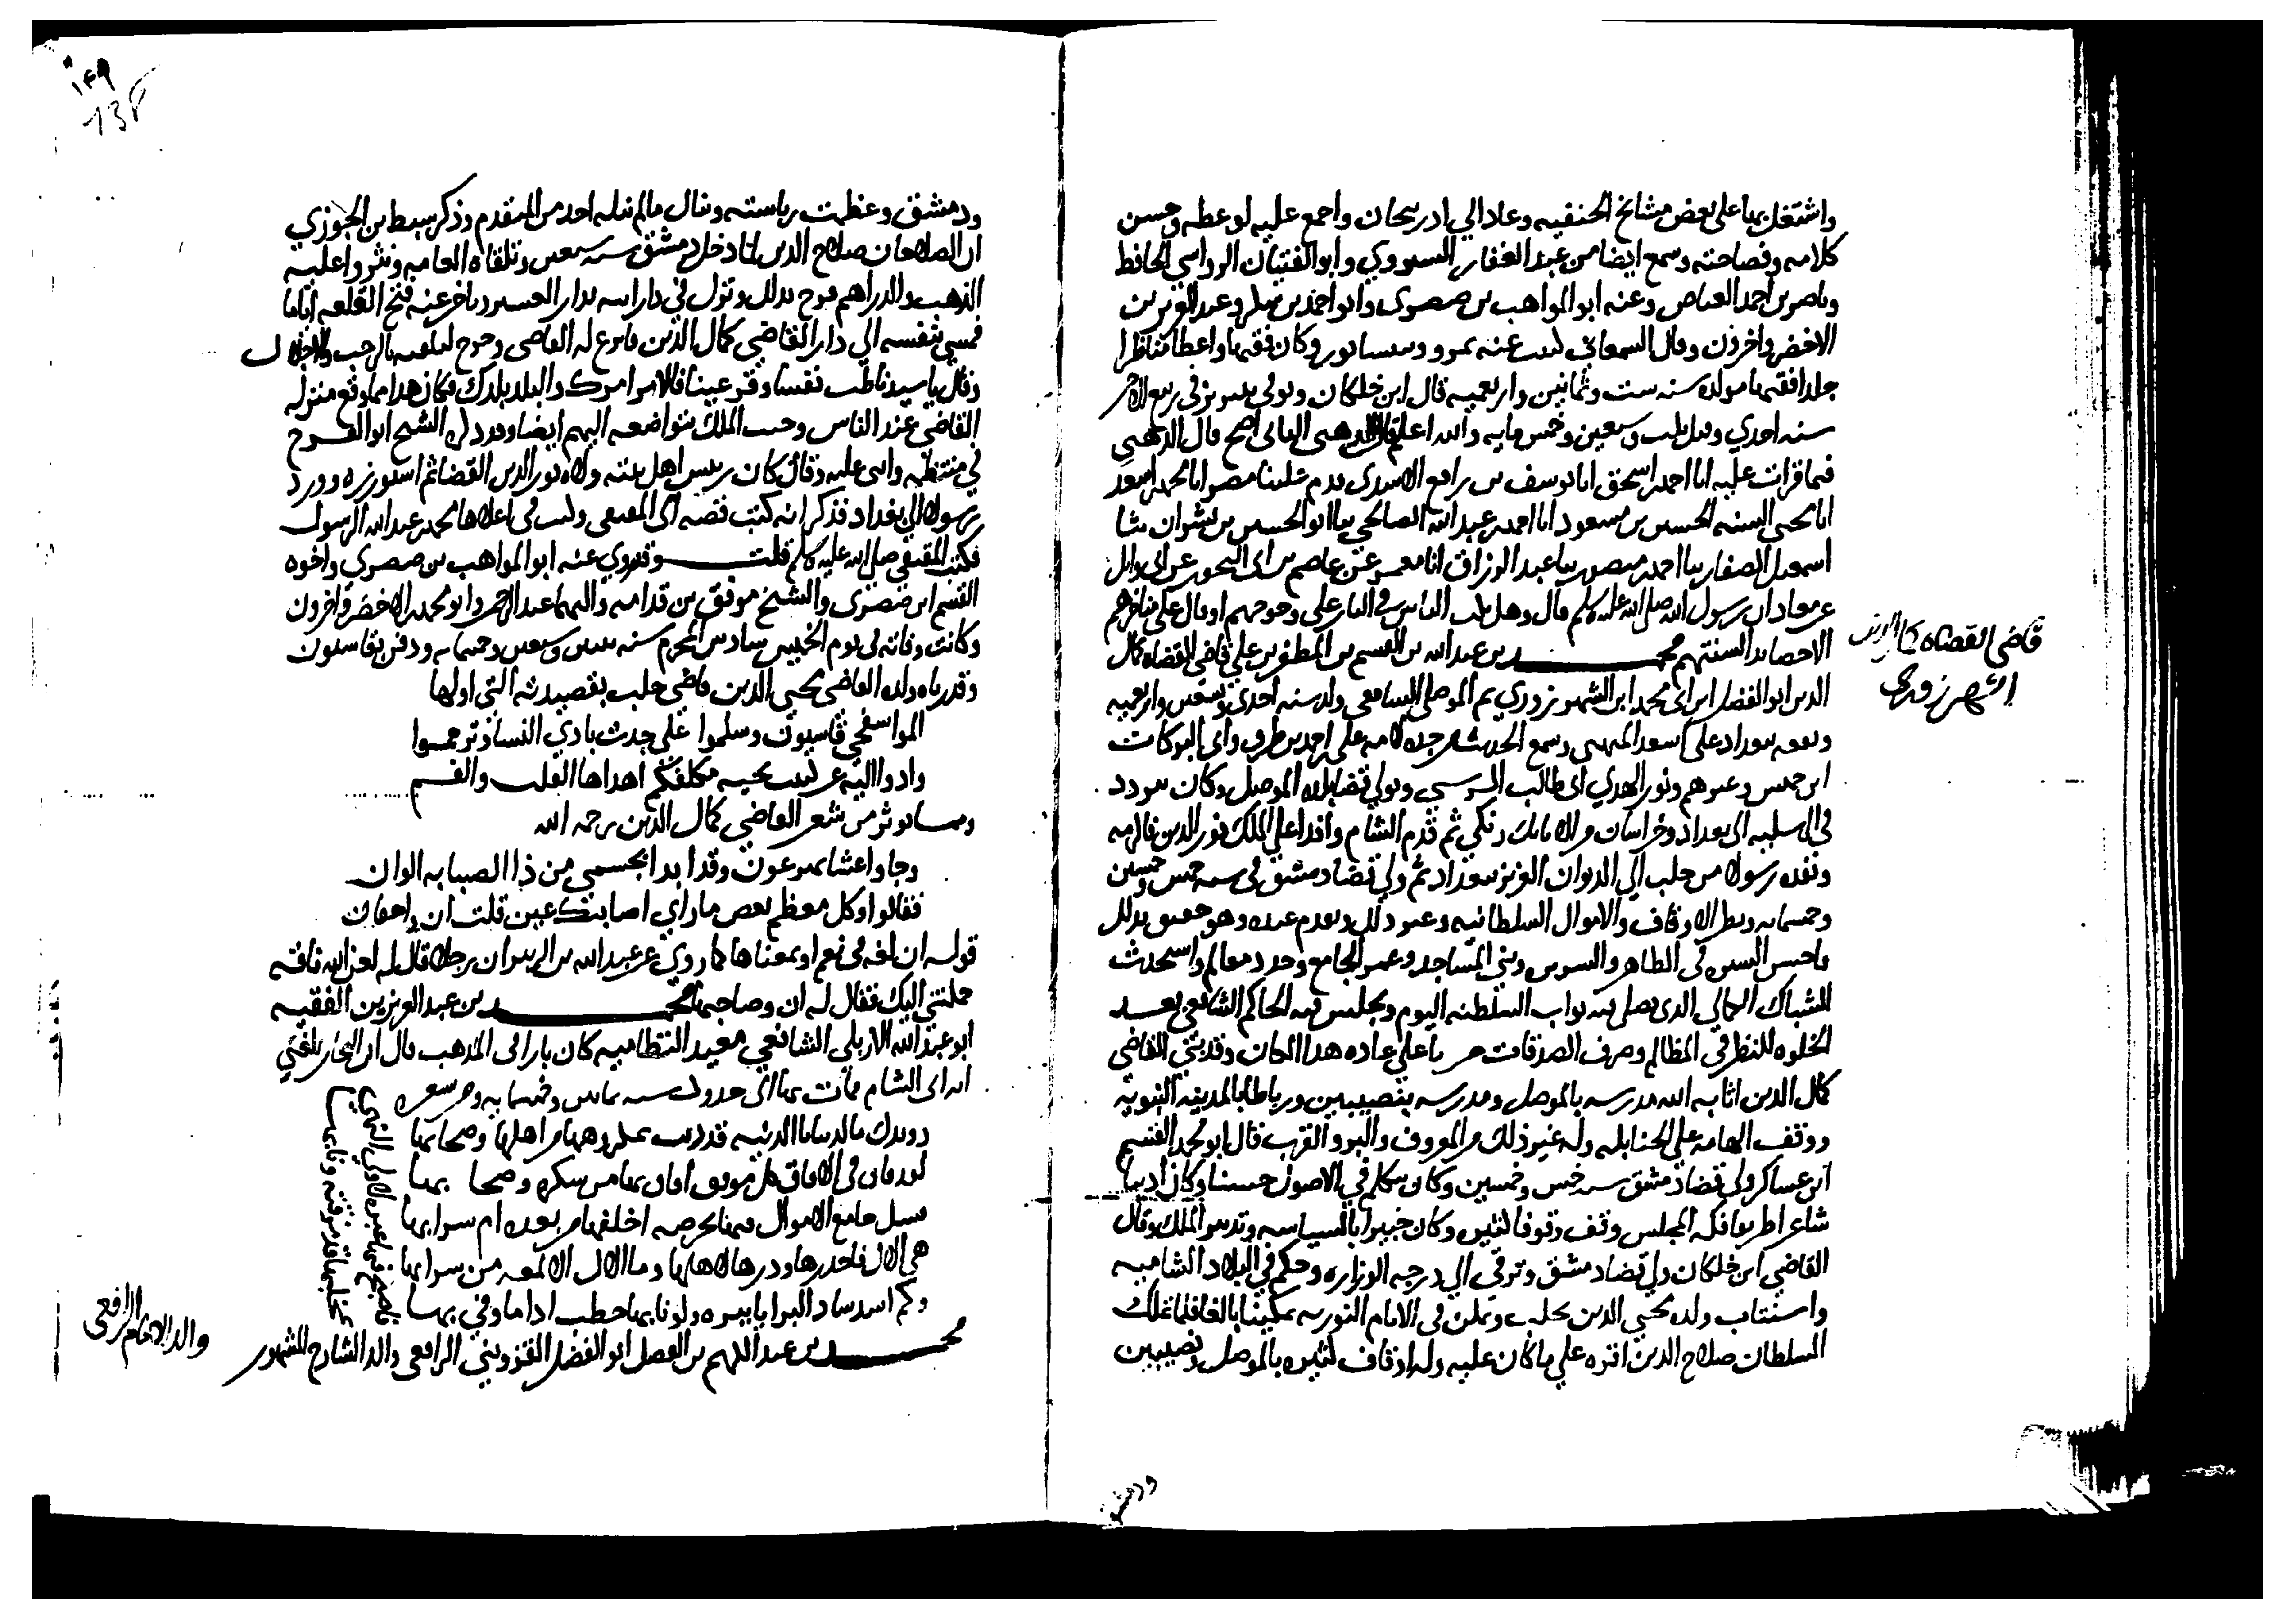 واشتغل بها على بعض مشائخ الحنفيه وعاد الي ادربيجان واجمع عليه لوعظه وحسن
كلامه وفصاحته وسمع ايضا من عبد الغفار السيروي وابو الفتيان الرواسي الحافظ
وناصر بن احمد العياض وعنه ابو المواهب بن صصري وابو احمد بن وعبد العزيز بن
الاخضر واخرون وقال السمعاني كتبت عنه بمرو ونيسابور وكان فقيها واعظا مناظرا
جلدا فقيها مولده سنه ست وثمانين واربعميه قال ابن خلكان وتوفي بتبريز في ربيع الاخر
سنه احدي وقيل ثلث وسبعين وخمس مايه والله اعلم قال الذهبي الثاني اصح قال الذهبي
فيما قرات عليه انا احمد بن اسحق انا يوسف بن رافع الاسدي قدم علينا مصر انا محمد بن اسعد
انا محيي السنه الحسين بن مسعود انا احمد بن عبد الله الصالحي ثنا ابو الحسين بن بشران ثنا
اسمعيل الصفار ثنا احمد بن منصور ثنا عبد الرزاق انا معمر عن عاصم بن ابي النجود عن ابي وايل
عن معاد ان رسول الله صلى الله عليه وسلم قال وهل يكب الناس في النار على وجوههم او قال على مناخرهم
الا حصائد السنتهم محمد بن عبد الله بن القسم بن المظفر بن علي قاضي القضاه كمال
الدين ابو الفضل ابن ابي محمد ابن الشهرزوري ثم الموصلي الشافعي ولد سنه احدي وتسعين واربعميه
وتفقه ببغداد على اسعد الميهني وسمع الحديث من جده لامه علي بن احمد بن طوق وابي البركات
ابن خميس وغيرهم ونور الهدي ابي طالب الزينبي وتولي قضا بلده الموصل وكان يتردد
في الرسليه الى بغداد وخراسان من الاتابك زنكي ثم قدم الشام وافدا على الملك نور الدين فاكرمه
ونفده رسولا من حلب الي الديوان العزيز ببغداد ثم ولي قضا دمشق في سنه خمس وخمسين
وخمسمايه ونظر الاوقاف والاموال السلطانيه وغير ذلك وتقدم عنده وهو حقيق بذلك
باحسن السيره في الظاهر والسر وبني المساجد وعمر الجامع وجدد معالمه واستحدث
الشباك الكمالي الذي يصلي فيه نواب السلطنه اليوم ويجلس فيه الحاكم الشافعي بعد
الخلوه للنظر في المظالم وصرف الصدقات جريا على عاده هذا المكان وقد بني القاضي
كمال الدين اثابه الله مدرسه بالموصل ومدرسه بنصيبين ورباطا بالمدينه النبويه
ووقف الهامه على الحنابله وله غير ذلك من المعروف والبر والقرب قال ابو محمد القسم
ابن عساكر ولي قضا دمشق سنه خمس وخمسين وكان يتكلم في الاصول حسنا وكان اديبا
شاعرا ظريفا فكه المجلس وقف وقوفا كثيره وكان خبيرا بالسياسه وتدبير الملك وقال
القاضي ابن خلكان ولي قضا دمشق وترقى الي درجه الوزاره وحكم في البلاد الشاميه
واستناب ولده محيي الدين بحلب وتمكن في الايام النوريه تمكينا بالغا فلما ملك
السلطان صلاح الدين اقره على ما كان عليه وله اوقاف كثيره بالموصل ونصيبين
ودمشق
قاضي القضاه كمال الدين
الشهرزوري
١٣٩
138
ودمشق وعظمت رياسته ونال مالم ينله احد من المتقدم وذكر سبط بن الجوزي
ان السلطان صلاح الدين لما دخل دمشق سنه سبعين وتلقاه العامه ونثروا عليه
الذهب والدراهم فرح بذلك ونزل في دار ابيه بدار العقيقي وتاخر عنه فتح القلعه اياما
فمشي بنفسه الي دار القاضي كمال الدين فانزعج له القاضي وخرج لتلقيه بالرحب والاجلال
وقال يا سيدنا طب نفسا وقر عينا فالامر امرك والبلد بلدك فكان هذا مما رفع منزله
القاضي عند الناس وحب الملك بتواضعه اليهم ايضا وقد ذكره الشيخ ابو الفرج
في منتظمه واثنى عليه وقال كان رييس اهل بيته ولاه نور الدين القضا ثم استوزره وورد
رسولا الي بغداد فذكر انه كتب قصه الى المقتفي وكتب في اعلاها محمد بن عبد الله الرسول
فكتب المقتفي صلى الله عليه وسلم قلت وقد روي عنه ابو المواهب بن صصري واخوه
القسم ابن صصري والشيخ موفق بن قدامه والبهاء عبد الرحمن وابو محمد بن الاخضر واخرون
وكانت وفاته في يوم الخميس سادس المحرم سنه ثنتين وسبعين وخمسمايه ودفن بقاسيون
وقد رثاه ولده القاضي محيي الدين قاضي حلب بقصيدته التي اولها
الموا بسفحي قاسيون وسلموا على جدث بادي السنا وترحموا
وادوا اليه عن كئيب تحيه مكلفكم اهداها القلب والفم
ومما يوثر من شعر القاضي كمال الدين رحمه الله
وجاوا عشاء يهرعون وقد ابدا بجسمي من ذا الصبابه الوان
فقالوا وكل معظم بعض ما راي اصابتك عين قلت ان واجفان
قوله ان لغه في نعم او بمعناها كما روي عن عبد الله بن الزبير ان رجلا قال له لعن الله ناقه
حملتني اليك فقال له ان وصاحبها محمد بن عبد العزيز بن الفقيه
ابو عبد الله الاربلي الشافعي معيد النظاميه كان بارا في المذهب قال ابن النجار بلغني
انه اتى الشام فمات بها في حدود سنه ثمانين وخمسمايه ومن شعره
رويدك فالدنيا الدنيه قد دنت من اهلها وصحابها
لقد فاق في الافاق كل موفق افاق بها من سكره وصحا بها
فسل جامع الاموال فيها بحرصه اخلفها من بعده ام سرا بها
هي الال فاحذرها وذرها لاهلها وما الال الا لمعه من سرابها
وكم اسد ساد البرايا ببره ولو نابها خطب اذا ما وني بها
فاصبح فيها عبره لاولي النهى
بمخلبها قد مزقته ونابها
محمد بن عبد الكريم بن الفضل ابو الفضل القزويني الرافعي والد الشارح المشهور
والد الامام الرافعي